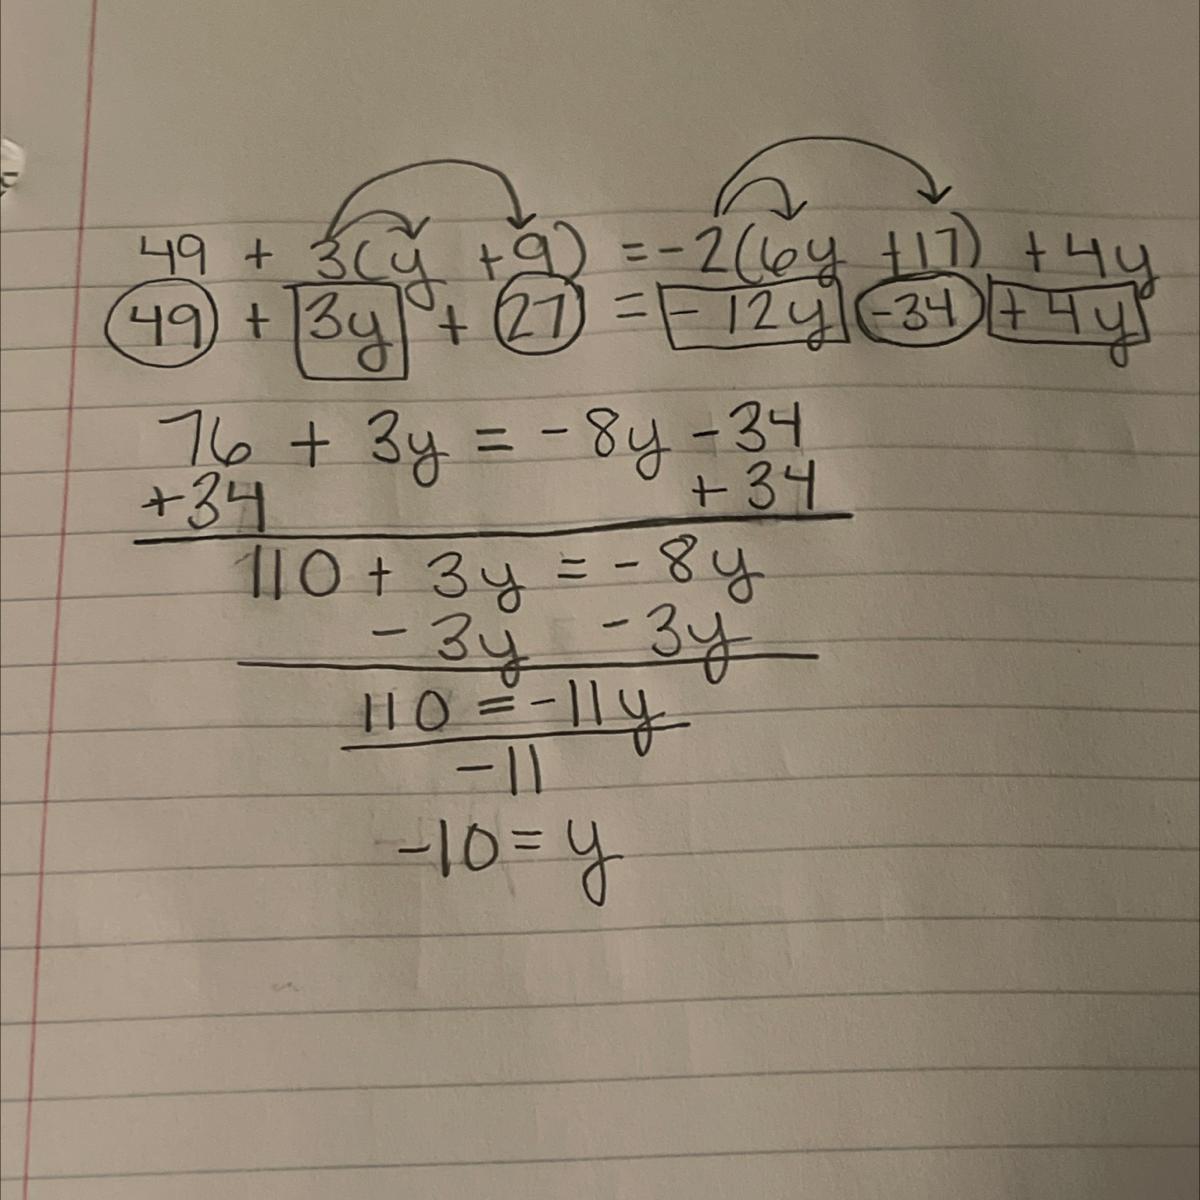 49 + 3(y + 9) = -2(6y + 17) + 4y
49 + 3y + 27 = -12y -34 + 4y
76 + 3y = -8y - 34
+34 +34
110 + 3y = -8y
- 3y - 3y
110 = -11y
-11
-10 = y